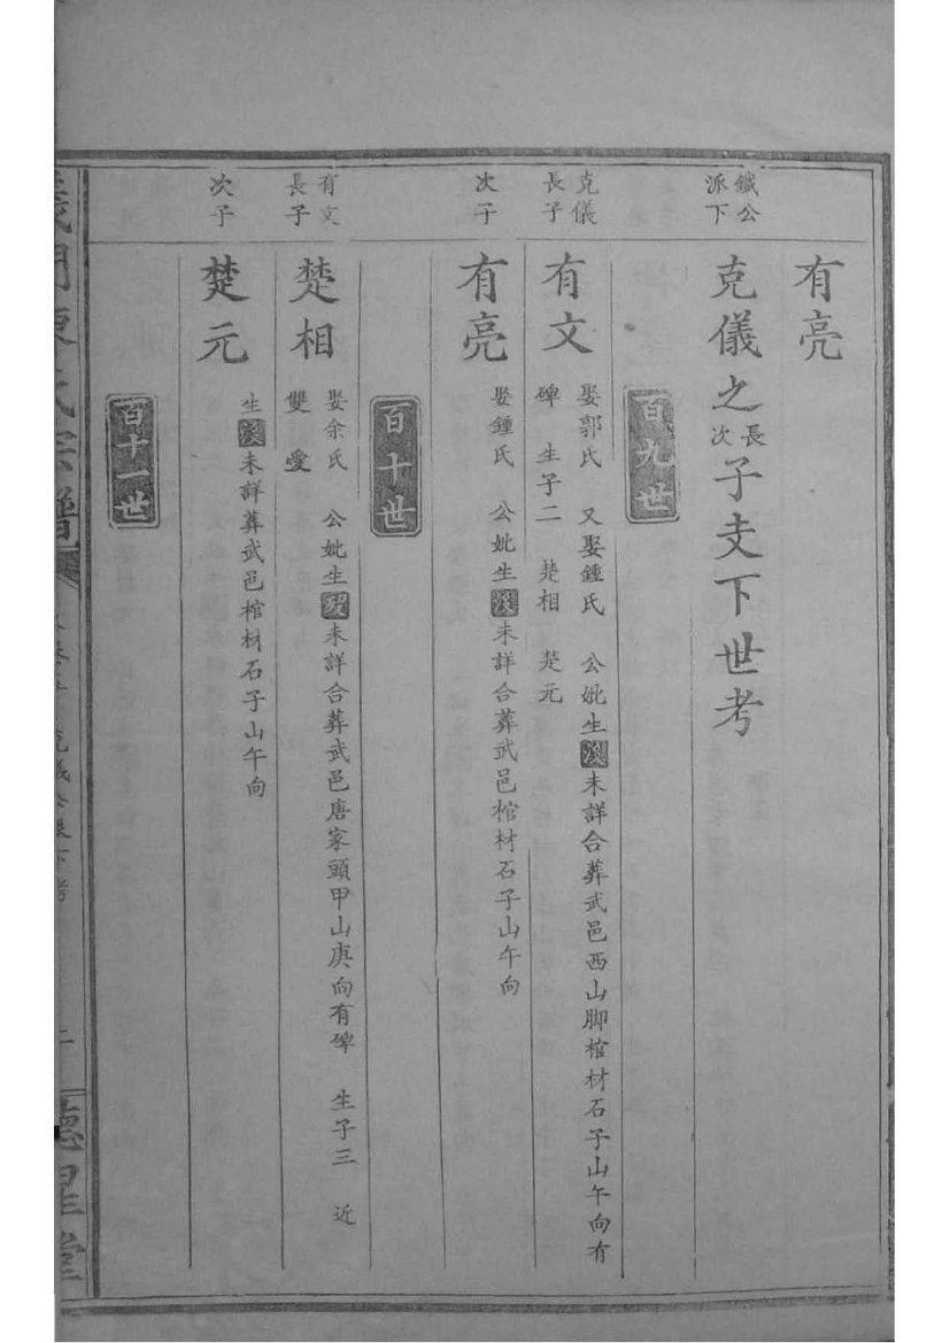 有亮
鐵公派下
克儀之長次子支下世考
百九世
克儀長子
有文
娶郭氏　又娶鍾氏　公妣生歿未詳合葬武邑西山腳棺材石子山午向有
碑　生子二　楚相　楚元
次子
有亮
娶鍾氏　公妣生歿未詳合葬武邑棺材石子山午向
百十世
有文長子
楚相
娶余氏　公妣生歿未詳合葬武邑唐家頭甲山庚向有碑　生子三　近
雙愛
次子
楚元
生歿未詳葬武邑棺材石子山午向
百十一世
義門陳氏宗譜
克儀公派下考
德星堂